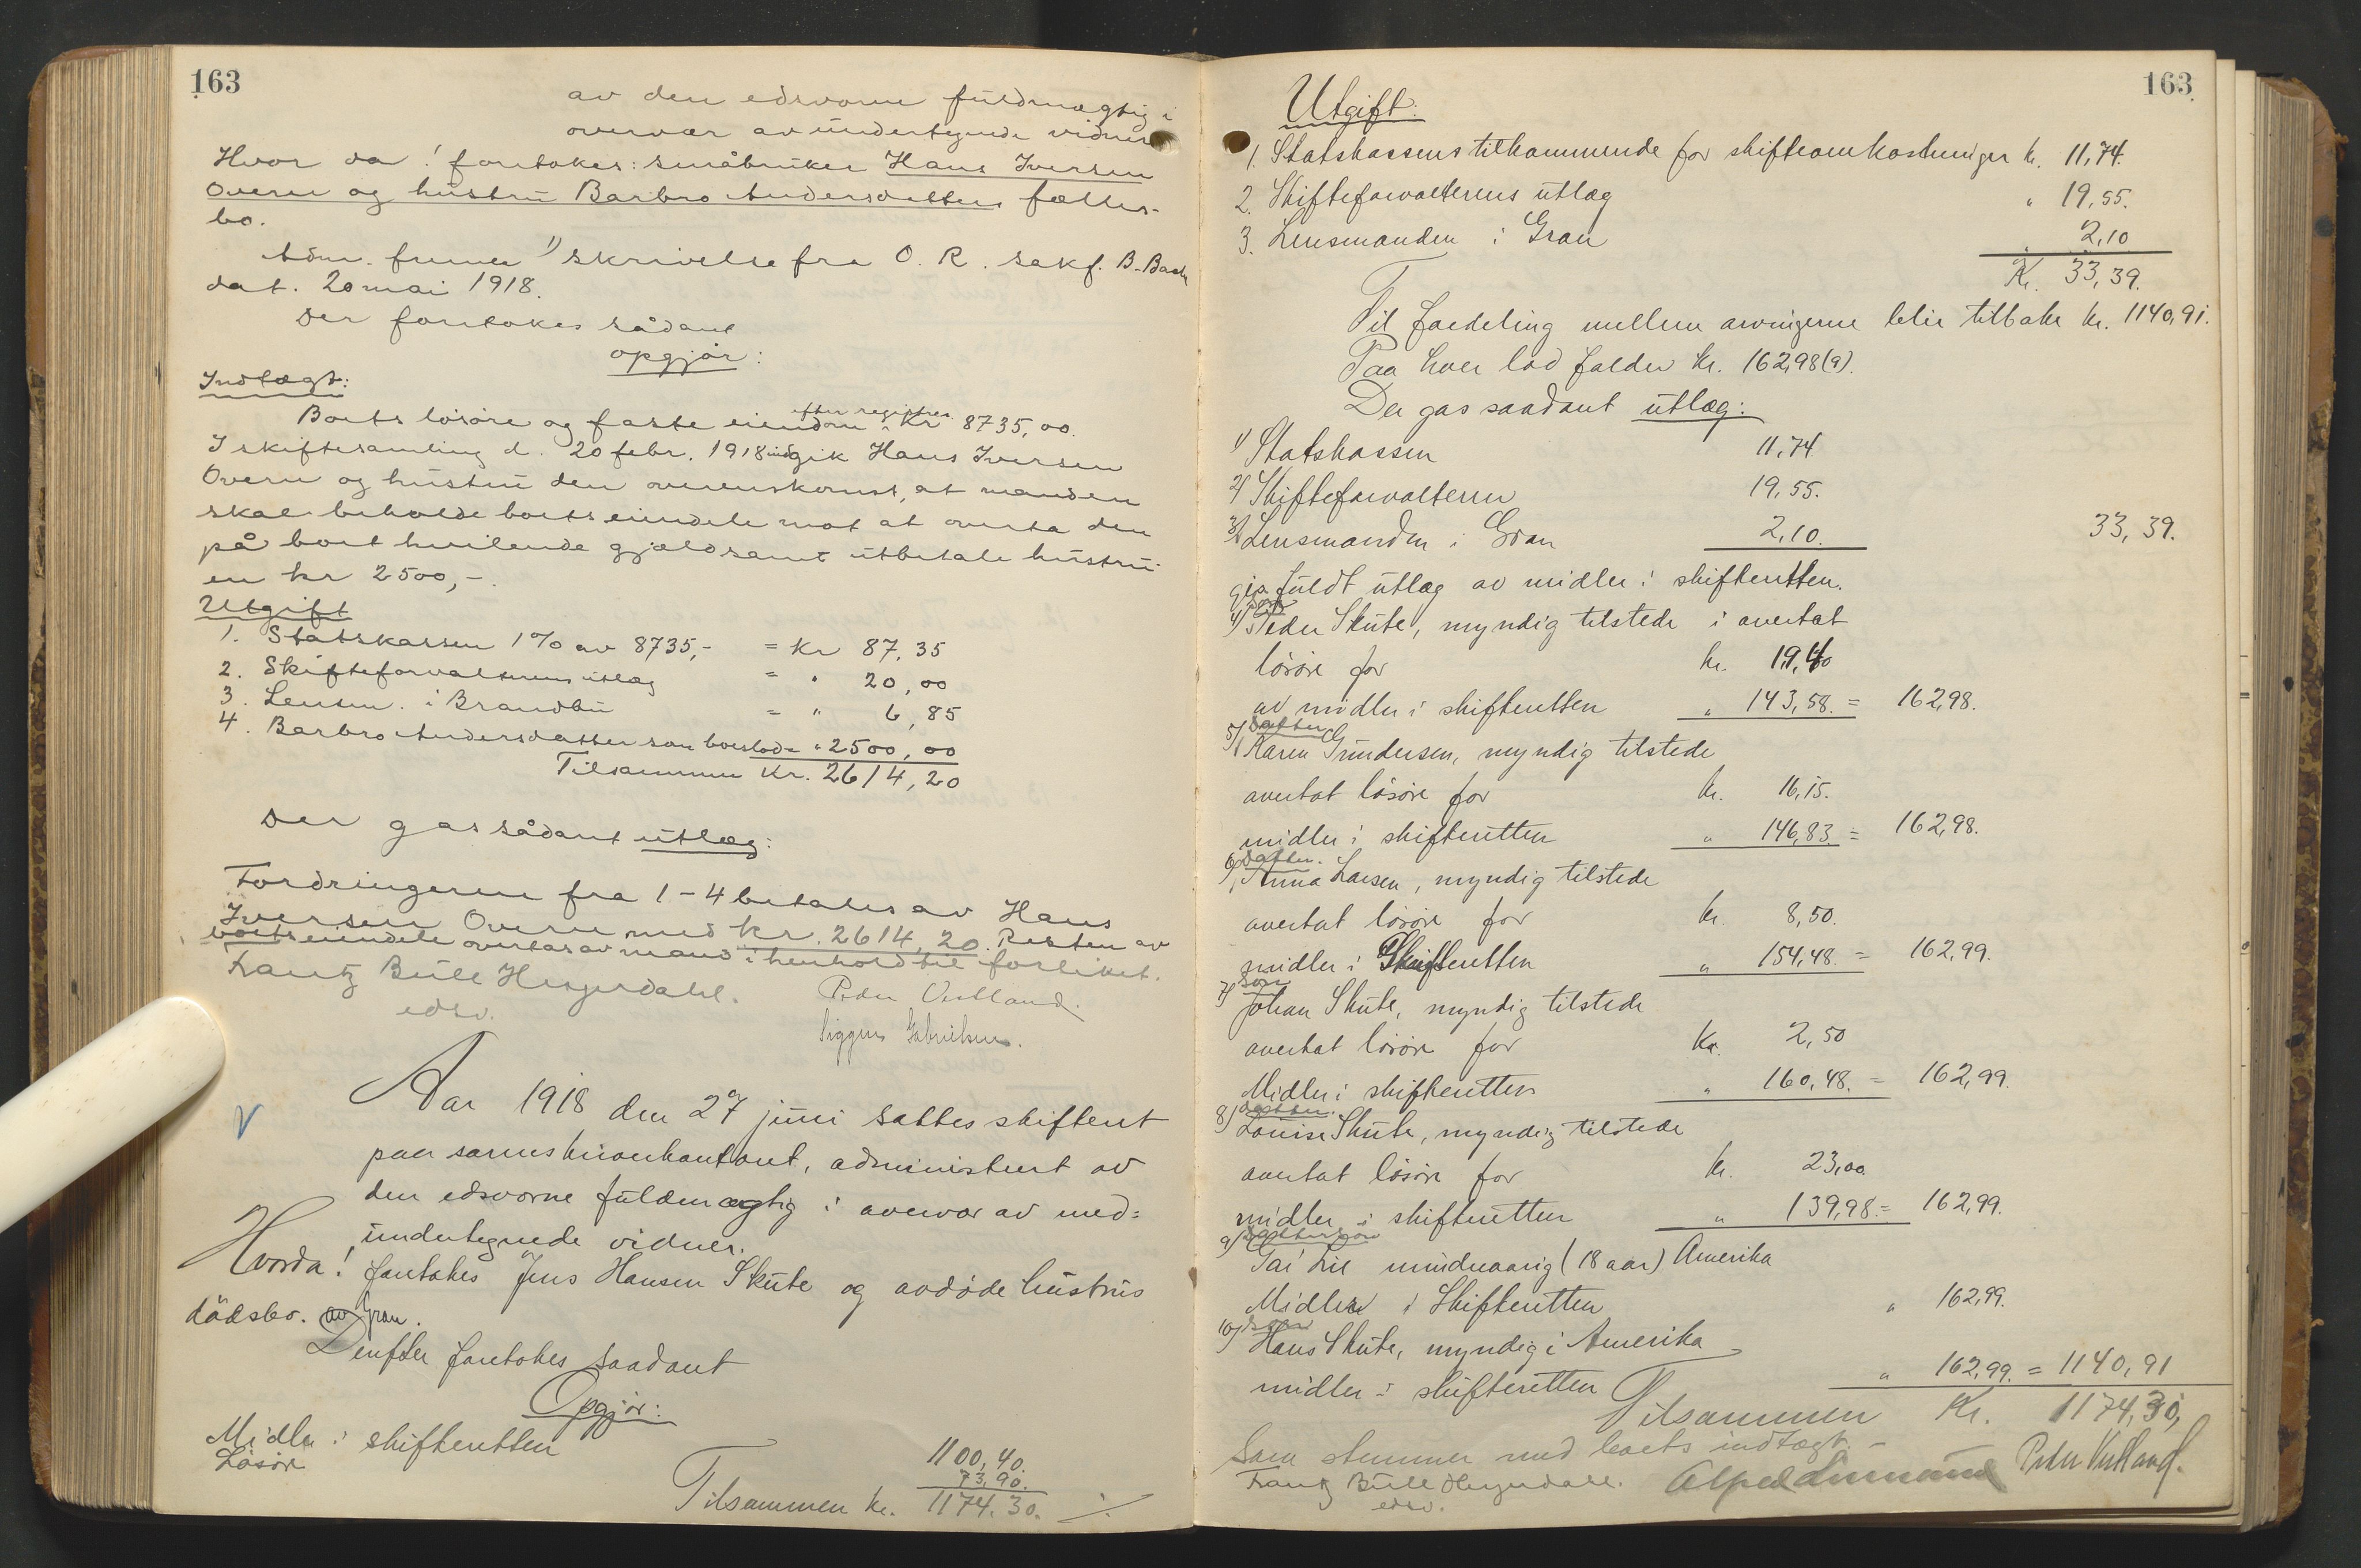 163
av den edsvorne fuldmægtig i
overvær av undertegnede vidner
Hvor da! foretokes: småbruker Hans Iversen
Overn og hustru Barbro Andersdatters fælles-
bo.
Adm. fremla 1) skrivelse fra O. R. sakf. B. Bach
dat. 20 mai 1918.
Der foretokes sådant
opgjør:
Indtægt:
efter registrer.
Boets løsøre og faste eiendom Kr 8735,00.
I skiftesamling d. 20 febr. 1918 indgik Hans Iversen
Overn og hustru den overenskomst, at manden
skal beholde boets eiendele mot at overta den
på boet hvilende gjæld samt utbetale hustru-
en kr 2500,-.
Utgift
1. Statskassen 1% av 8735,- = Kr 87,35
2. Skifteforvalterens utlæg = " 20,00
3. Lensm. i Brandbu = " 6,85
4. Barbro Andersdatter som boeslod = " 2500,00
Tilsammen Kr. 2614,20
Der gas sådant utlæg:
Fordringerne fra 1-4 betales av Hans
Iversen Overn med kr. 2614,20. Resten av
boets eiendele overtas av mand i henhold til forliket.
Frantz Bull Hegerdahl. Peder Vestland.
edsv. Gabrielsen.
V
Aar 1918 den 27 juni sattes skifteret
paa sorenskriverkontoret, administrert av
den edsvorne fuldmægtig i overvær av med:
undertegnede vidner.
Hvorda! foretokes Jens Hansen Skute og avdøde hustrus
dødsbo. av Gran.
Derefter foretokes saadant
Opgjør:
Midler i skifteretten 1100,40.
Løsøre 73,90.
Tilsammen kr. 1174.30. ./.
163
Utgift:
1. Statskassens tilkommende for skifteomkostninger kr. 11,74.
2. Skifteforvalterens utlæg " 19,55.
3. Lensmanden i Gran 2,10
Kr. 33,39.
Til fordeling mellem arvingerne blir tilbake kr. 1140,91.
Paa hver lod falder kr. 162,98(9).
Der gas saadant utlæg:
1) Statskassen 11,74
2) Skifteforvalteren 19,55.
3) Lensmanden i Gran 2,10. 33,39.
gis fuldt utlæg av midler i skifteretten.
Søn
4) Peder Skute, myndig tilstede i overtat
løsøre for kr. 19,40
av midler i skifteretten " 143,58. = 162,98.
Datter
5) Karen Gundersen, myndig tilstede
overtat løsøre for kr. 16,15.
midler i skifteretten " 146,83 = 162,98.
Datter.
6) Anna Larsen, myndig tilstede
overtat løsøre for kr. 8,50.
midler i Skifteretten " 154,48. = 162,99.
Søn
7) Johan Skute, myndig tilstede
overtat løsøre for Kr. 2,50
Midler i skifteretten " 160,48. = 162,99.
Datter.
8) Louise Skute, myndig tilstede
overtat løsøre for kr. 23,00
midler i skifteretten " 139,98.= 162,99.
Dattersøn
9) Lie mindreaarig (18 aar) Amerika
Midler i Skifteretten " 162,99.
Søn
10) Hans Skute, myndig i Amerika
midler i skifteretten " 162,99. = 1140,91
Tilsammen Kr. 1174,30,
Som stemmer med boets indtægt. -
Frantz Bull Hegerdahl. Peder Vestland.
edsv.